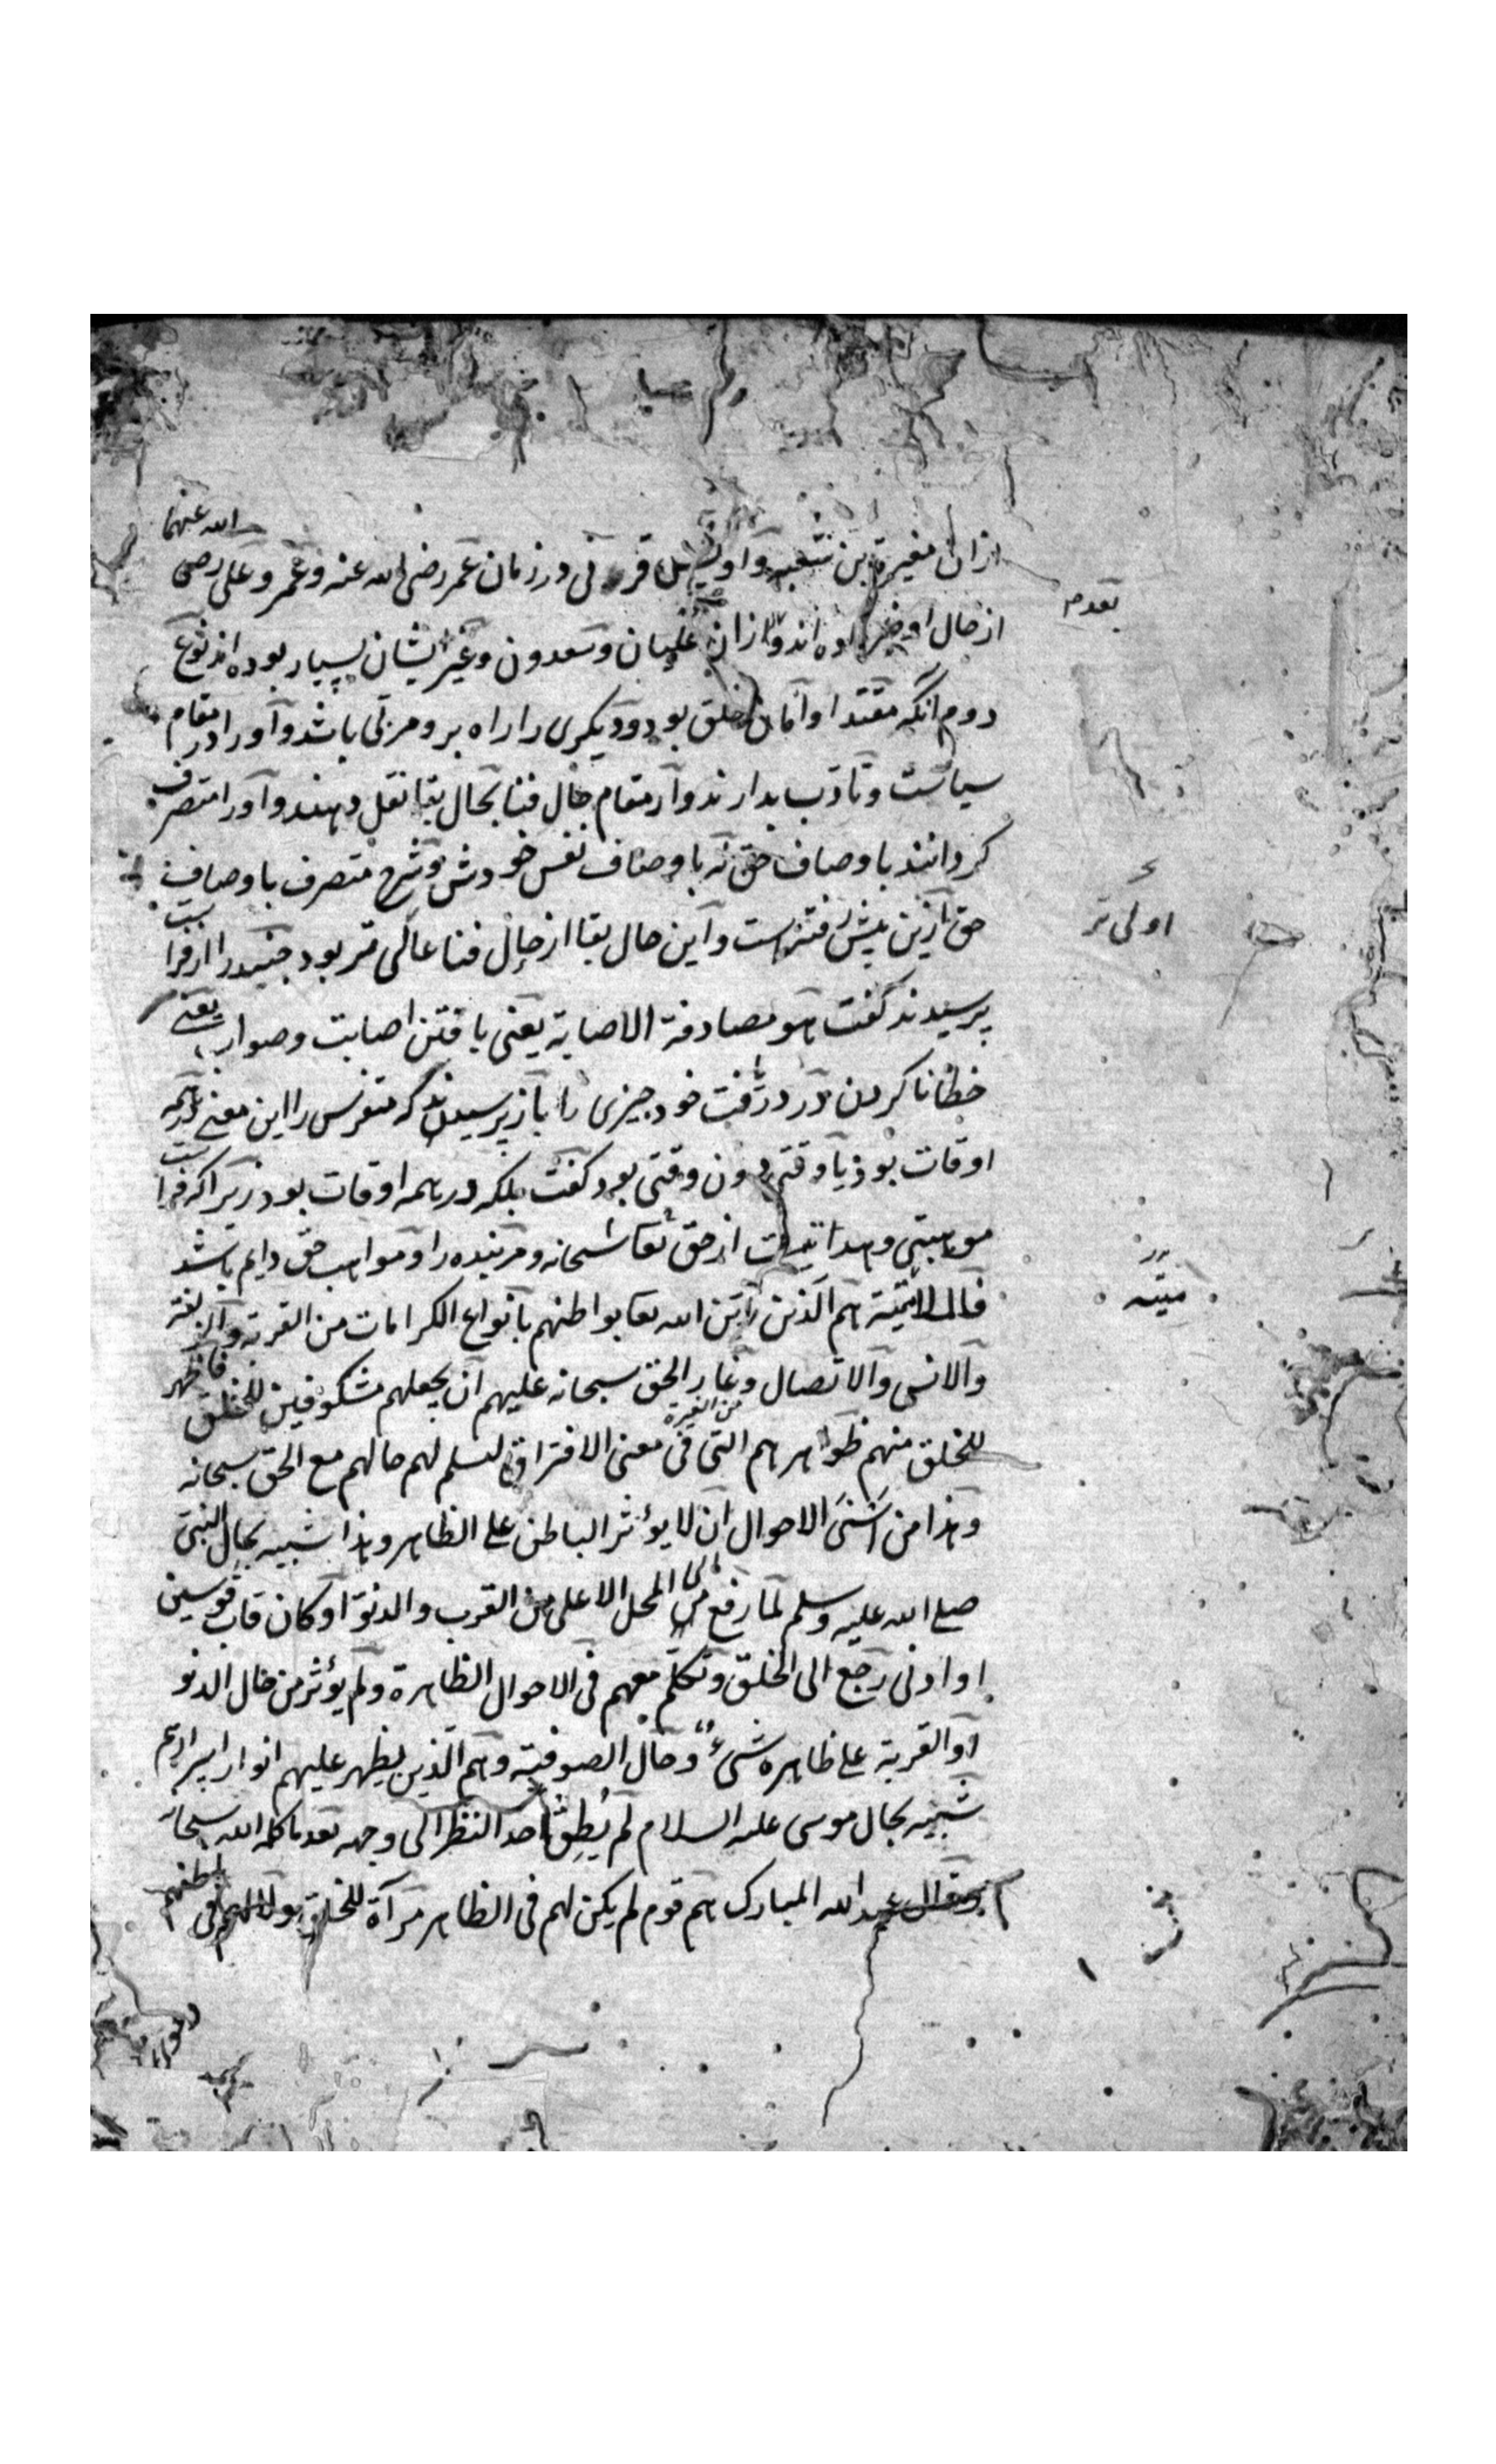 ازان مغیرة بن شعبه و اویس قرنی در زمان عمر رضی الله عنه و عمر و علی رضی الله عنهما
از حال او خبر داده اند و ازان علیان و سعدون و غیر ایشان بسیار بوده اند نوع
بعدم
دوم انکه مقتدا و امان خلق بود و دیکری را راه برو مربی باشد و اورا در مقام
سیاست و تادب بدارند و از مقام حال فنا بحال بقا نقل دهند و اورا متصرف
کردانند باوصاف حق نه باوصاف نفس خودش و شرح متصرف باوصاف
حق ازین پیش رفتست و این حال بقا از حال فنا عالی تر بود جنید را از فراست
اولی تر
پرسیدند کفت هو مصادفة الاصابة یعنی یافتن اصابت و صواب یعنی
خطا ناکردن در دریافت خود چیزی را باز پرسیدند که متفرس را این معنی در همه
اوقات بود یا وقتی دون وقتی بود کفت بلکه در همه اوقات بود زیرا که فراست
موهبتی و هدایتیست از حق تعا سبحانه و مر بنده را و مواهب حق دایم باشد
قال الملامتیة هم الذین زین الله تعا بواطنهم بانواع الکرامات من القربة و الزلفة
میته
والانس والاتصال و غار الحق سبحانه علیهم ان یجعلهم مشکوفین للخلق فاظهر
للخلق منهم ظواهرهم التی فی معنی الافتراق من الغیرة لیسلم لهم حالهم مع الحق سبحانه
وهذا من اسنی الاحوال ان لا یؤثر الباطن علی الظاهر وهذا شبیه بحال النبی
صلی الله علیه وسلم لما رفع الی المحل الاعلی من القرب والدنو و کان قاب قوسین
او ادنی رجع الی الخلق و تکلم معهم فی الاحوال الظاهرة ولم یؤثر من حال الدنو
او القربة علی ظاهره شیء و حال الصوفیة وهم الذین یظهر علیهم انوار اسرارهم
شبیه بحال موسی علیه السلام لم یطق احد النظر الی وجهه بعد ما کلمه الله سبحانه
و قال عبد الله المبارک هم قوم لم یکن لهم فی الظاهر مرآة للخلق ولا لهم فی باطنهم